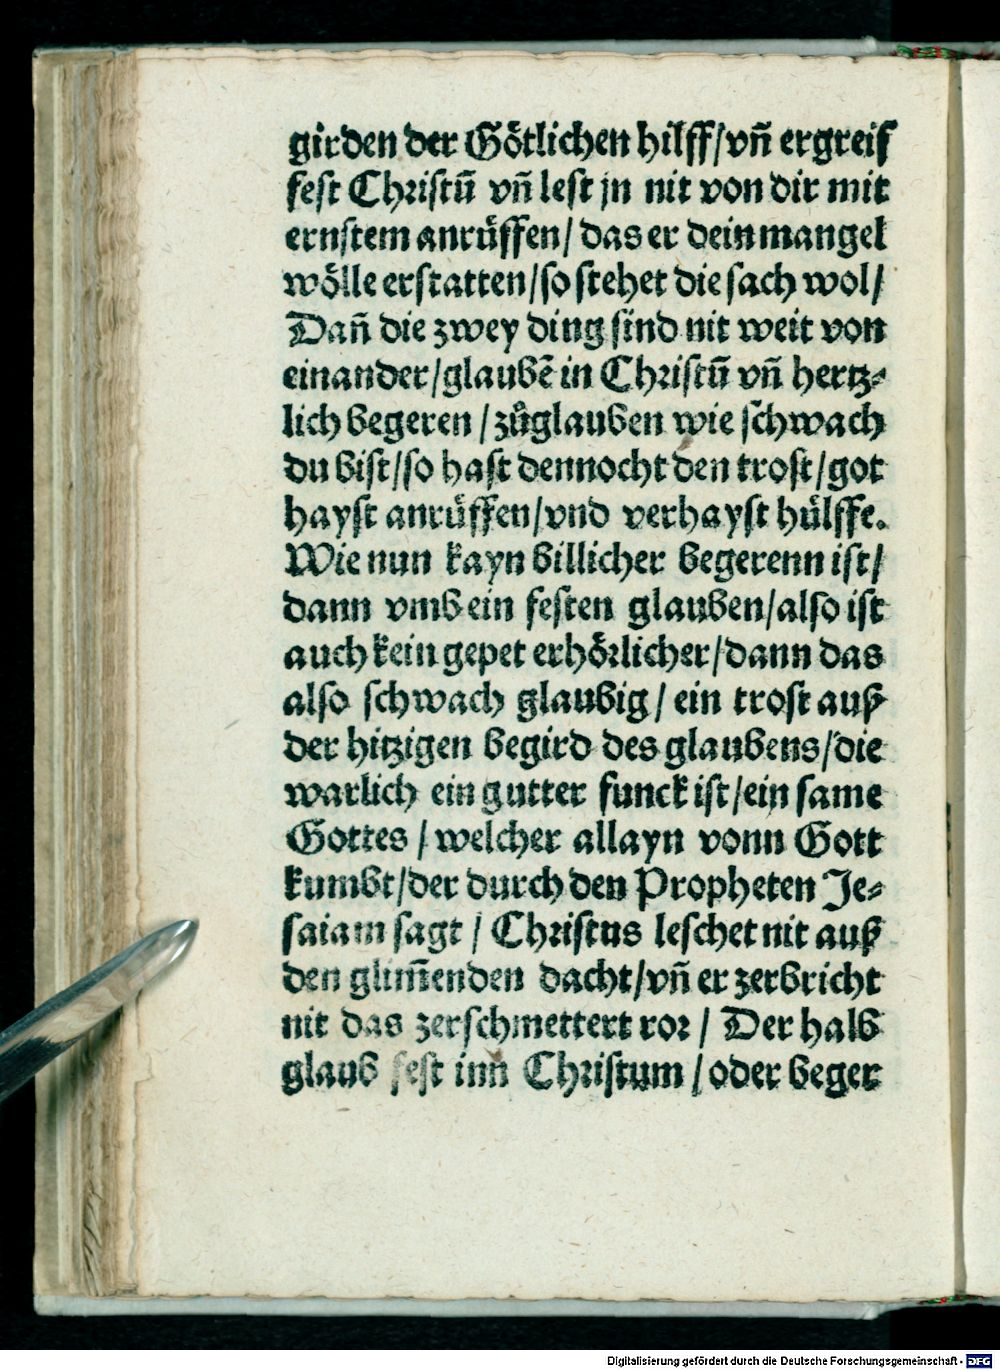 girden der Götlichen hilff/vñ ergreif
fest Christū vñ lest jn nit von dir mit
ernstem anrüffen/ das er dein mangel
wölle erstatten/so stehet die sach wol/
Dañ die zwey ding sind nit weit von
einander/glaubē in Christū vñ hertz⸗
lich begeren / zůglauben wie schwach
du bist/so hast dennocht den trost/got
hayst anrüffen/vnd verhayst hülffe.
Wie nun kayn billicher begerenn ist/
dann vmb ein festen glauben/also ist
auch kein gepet erhörlicher/dann das
also schwach glaubig / ein trost auß
der hitzigen begird des glaubens/die
warlich ein gutter funck ist/ein same
Gottes / welcher allayn vonn Gott
kumbt/der durch den Propheten Je⸗
saiam sagt / Christus leschet nit auß
den glim̄enden dacht/vñ er zerbricht
nit das zerschmettert ror / Der halb
glaub fest inn Christum / oder beger
Digitalisierung gefördert durch die Deutsche Forschungsgemeinschaft - DFG